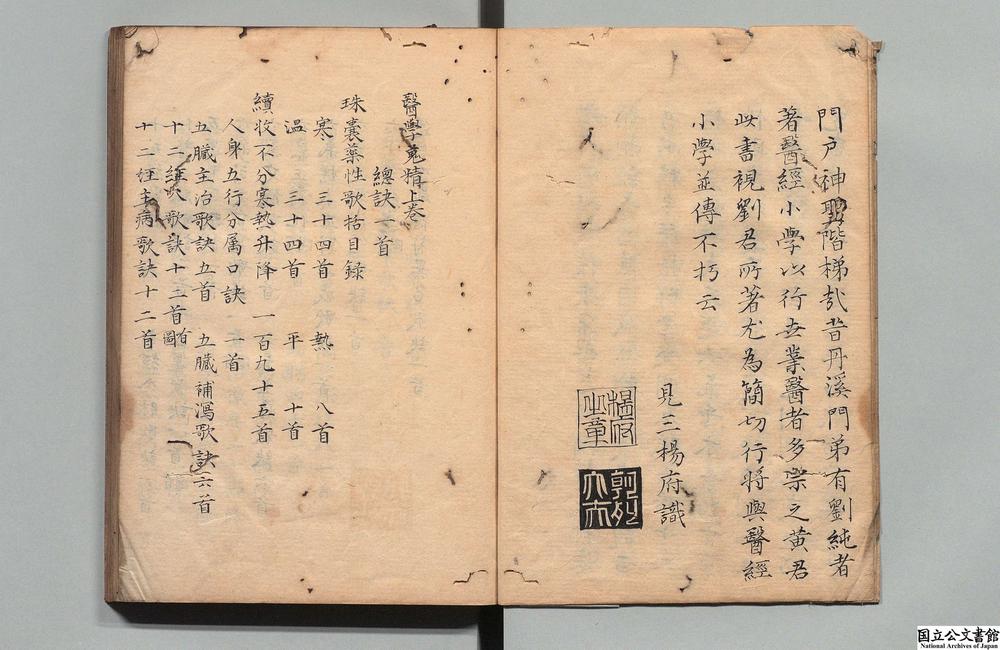 門戶神聖階梯哉昔丹溪門弟有劉純者
著醫經小學以行世業醫者多崇之黃君
此書視劉君所著尤為簡切行將與醫經
小學並傳不朽云
見三楊府識
楊府之章
醫學蒐精上卷
總訣一首
珠囊藥性歌括目録
寒 三十四首 熱 八首
温 三十四首 平 十首
續收不分寒熱升降一百九十五首
人身五行分属口訣一首
五臟主治歌訣五首 五臟補瀉歌訣六首
十二經歌訣十二首 圖
十二經主病歌訣十二首
国立公文書館
National Archives of Japan